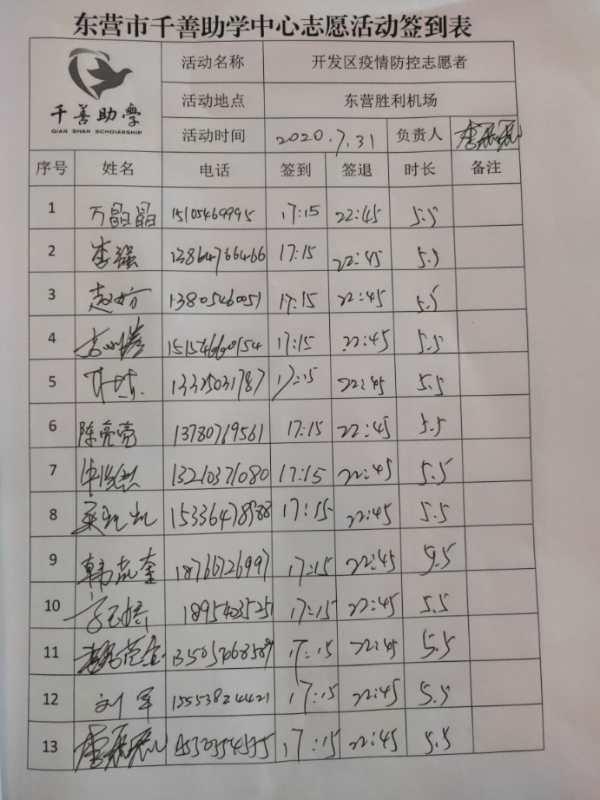 东营市千善助学中心志愿活动签到表
千善助学
QIAN SHAN SCHOLARSHIP
活动名称 开发区疫情防控志愿者
活动地点 东营胜利机场
活动时间 2020.7.31 负责人
序号 姓名 电话 签到 签退 时长 备注
1 万晶晶 15105469995 17:15 22:45 5.5
2 李强 13864766466 17:15 22:45 5.5
3 13805460051 17:15 22:45 5.5
4 17:15 22:45 5.5
5 13325031787 17:15 22:45 5.5
6 陈亮亮 13780719561 17:15 22:45 5.5
7 13210371080 17:15 22:45 5.5
8 15336478988 17:15 22:45 5.5
9 18766726997 17:15 22:45 5.5
10 17:15 22:45 5.5
11 17:15 22:45 5.5
12 刘军 15553824421 17:15 22:45 5.5
13 17:15 22:45 5.5